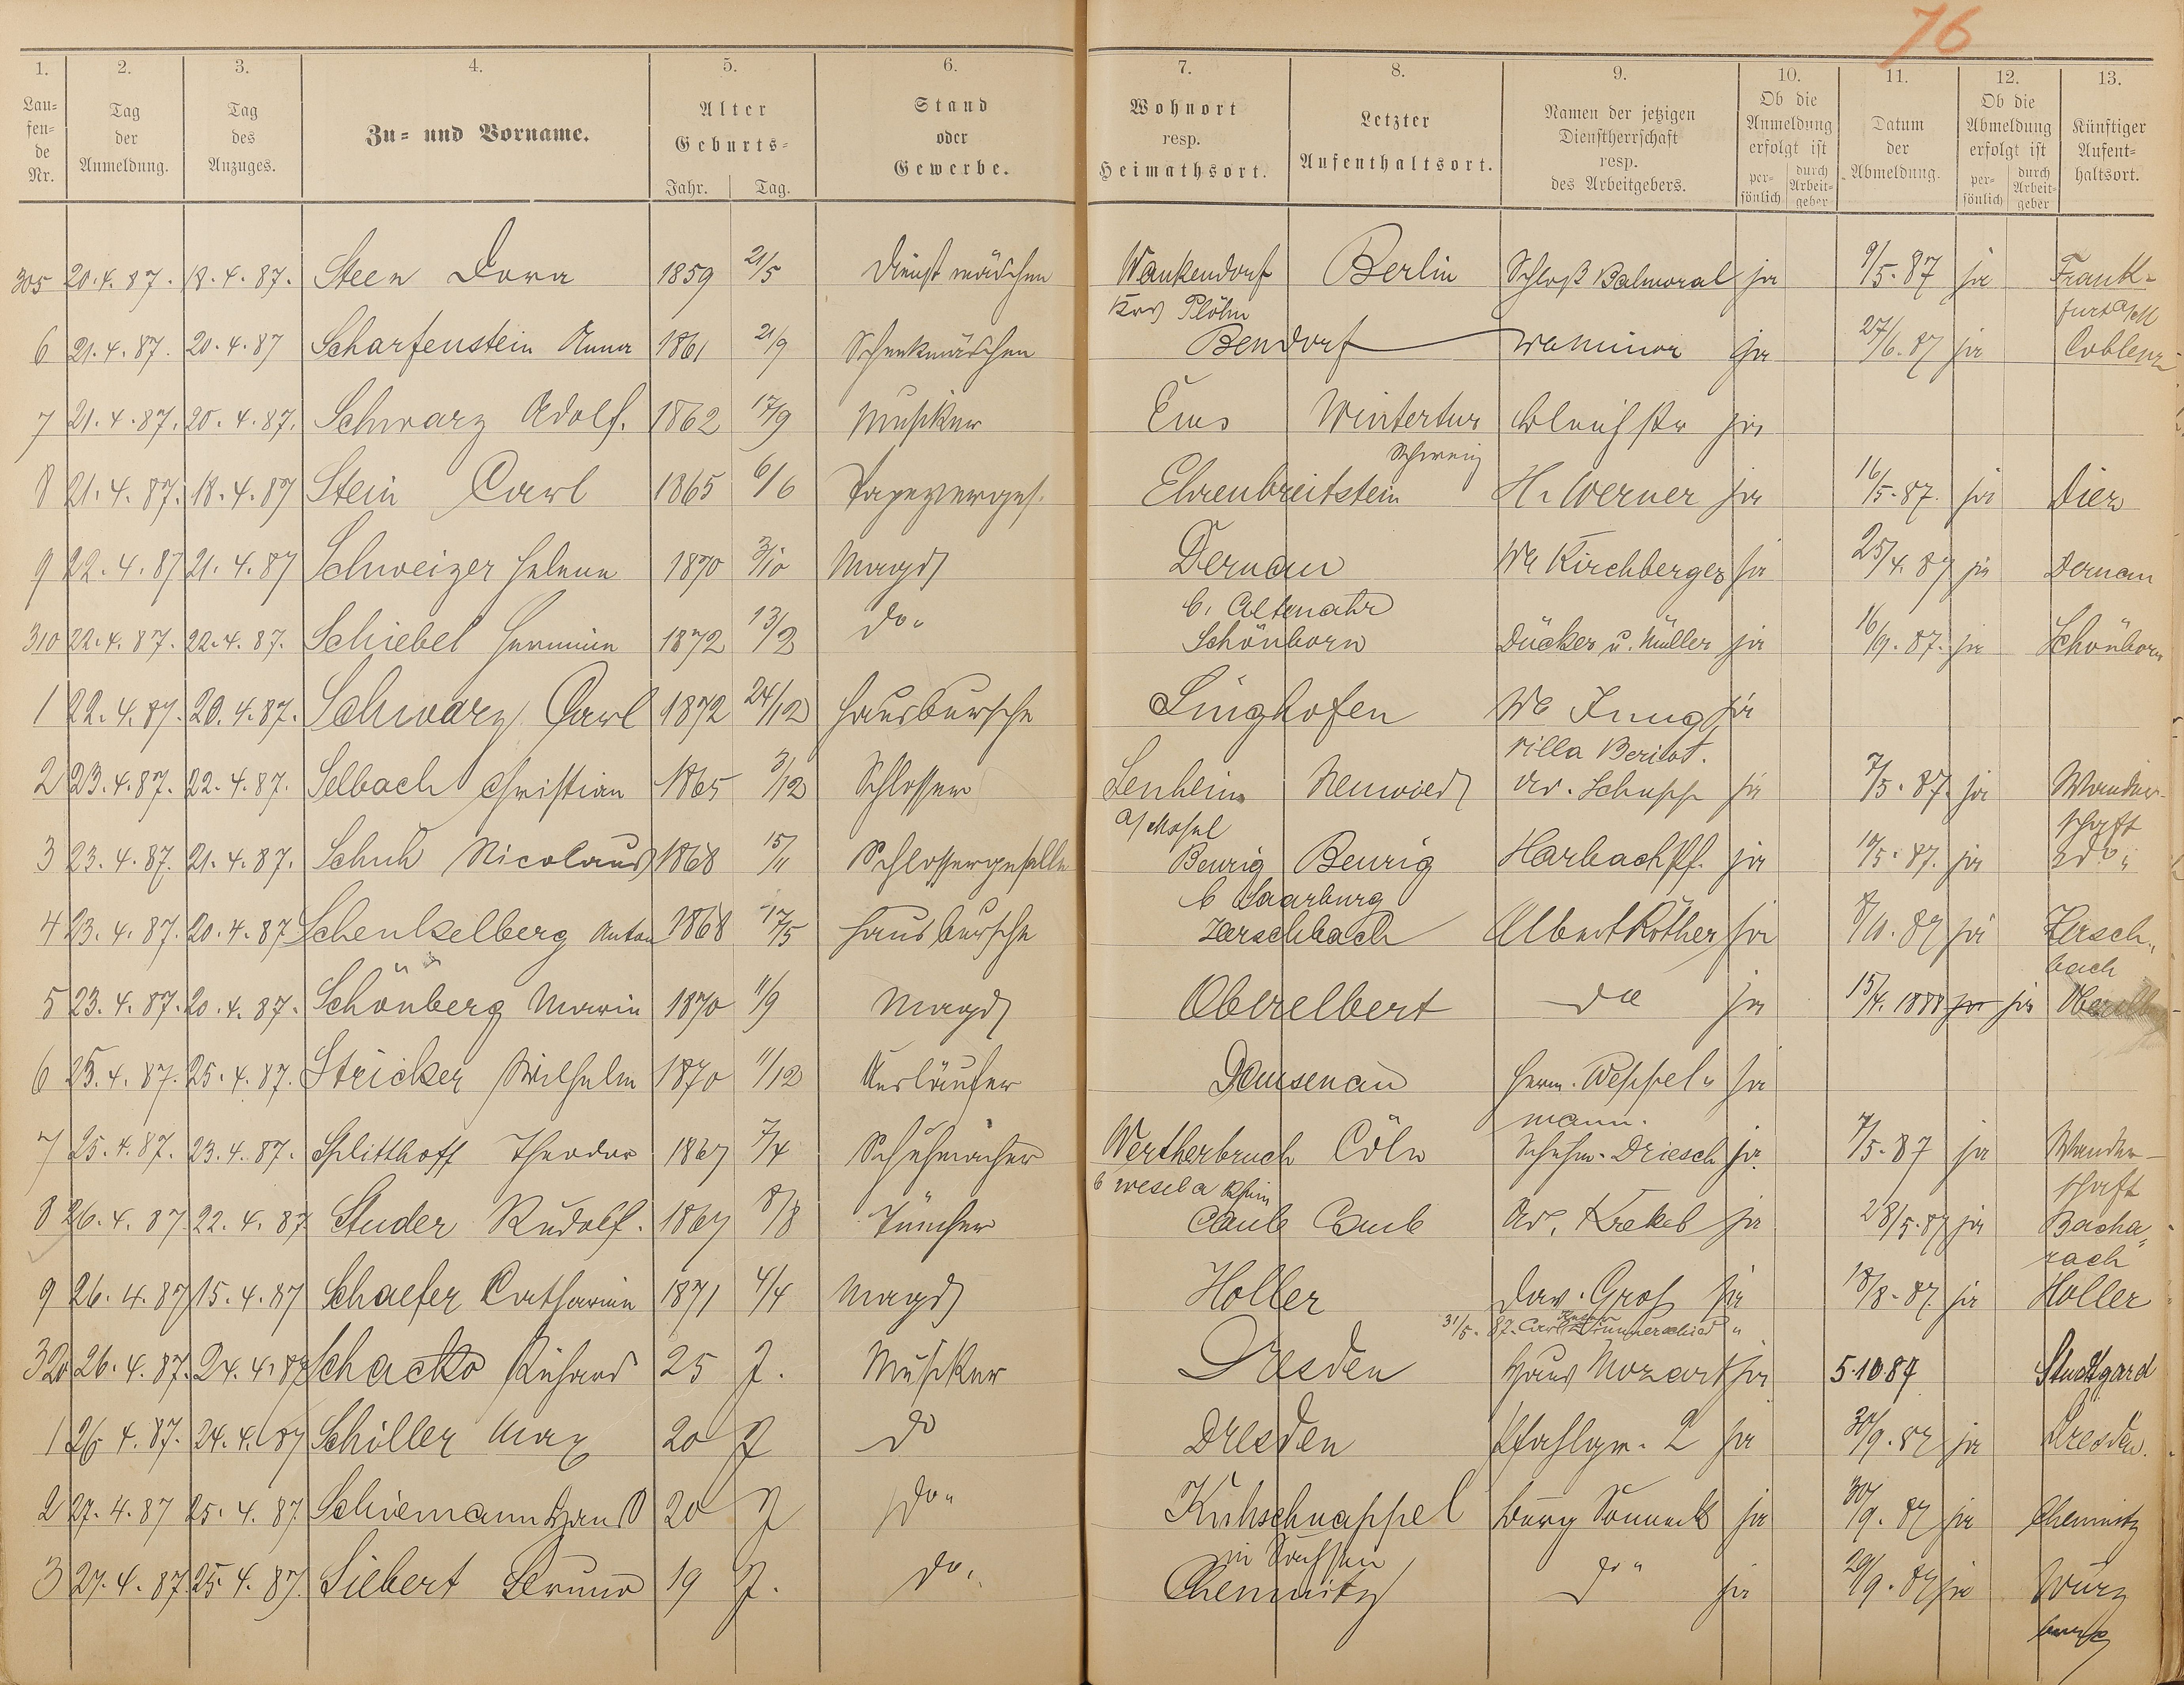 76
1. 2. 3. 4. 5. 6. 7. 8. 9. 10. 11. 12. 13.
Laufende Nr. Tag der Anmeldung. Tag des Anzuges. Zu- und Vorname. Alter Geburts- Jahr. Tag. Stand oder Gewerbe. Wohnort resp. Heimathsort. Letzter Aufenthaltsort. Namen der jetzigen Dienstherrschaft resp. des Arbeitgebers. Ob die Anmeldung erfolgt ist persönlich durch Arbeitgeber Datum der Abmeldung. Ob die Abmeldung erfolgt ist persönlich durch Arbeitgeber Künftiger Aufenthaltsort.
305 20.4.87. 18.4.87. Steen Dora 1859 21/5 Dienstmädchen Wankendorf Berlin Schloß Balmoral ja 9/5.87 ja Frank-
Krs Plöhn furt a/M
6 21.4.87. 20.4.87 Scharfenstein Anna 1861 21/9 Schenkmädchen Bendorf ja 27/6.87 ja Coblenz
7 21.4.87. 20.4.87. Schwarz Adolf. 1862 17/9 Musiker Ems Wintertur Bleichstr ja
Schweiz
8 21.4.87. 18.4.87 Stein Carl 1865 6/6 Tapezierges. Ehrenbreitstein H. Werner ja 16/5.87. ja Diez
9 22.4.87 21.4.87 Schweizer Helene 1870 3/10 Magd Dernau We Kirchberger ja 25/4.87 ja Dernau
b. Altenahr
310 22.4.87. 22.4.87. Schiebel Hermine 1872 13/2 do. Schönborn Dücker u. Müller ja 16/9.87. ja Schönborn
1 22.4.87. 20.4.87. Schwarz Carl 1872 24/12 Hausbursche Singhofen We Jung ja
Villa Beriot.
2 23.4.87. 22.4.87. Selbach Christian 1865 3/12 Schlosser Senheim Neuwied Ad. Schupp ja 7/5.87. ja Wander-
a/Mosel schaft
3 23.4.87. 21.4.87. Schuh Nicolaus 1868 15/11 Schlossergeselle Beurig Beurig Harbach Pf. ja 10/5.87. ja do.
b Saarburg
4 23.4.87. 20.4.87 Schenkelberg Anton 1868 17/5 Hausbursche Herschbach Albert Röther ja 8/11.87 ja Hersch-
bach
5 23.4.87. 20.4.87. Schönberg Maria 1870 11/9 Magd Oberelbert do ja 15/4.1888 ja ja
6 25.4.87. 25.4.87. Stricker Wilhelm 1870 11/12 Ausläufer Dausenau Herm. Weppel- ja
mann.
7 25.4.87. 23.4.87. Splitthoff Theodor 1867 7/4 Schuhmacher Wertherbruch Cöln Schuhm. Driesch ja. 7/5.87 ja Wander-
b Wesel a Rhein schaft
8 26.4.87 22.4.87 Studer Rudolf. 1867 8/8 Tüncher Caub Caub Ad. Krekel ja 28/5.87 ja Bacha-
rach
9 26.4.87 15.4.87 Schaefer Catharina 1871 4/4 Magd Holler Dav. Groß ja 18/8.87. ja Holler
31/5.87. Carl Dimmerschied "
320 26.4.87. 24.4.87 Schacko Richard 25 J. Musiker Dresden Haus Mozart ja 5.10 87 Stuttgard
1 26 4.87. 24.4.87 Schiller Max 20 J do Dresden Pfahlgr. 2 ja 30/9.87 ja Dresden.
2 27.4.87 25.4.87 Schiemann Hans 20 J do. Kuhschnappel Burg Sonneck ja 30/9.87 ja Chemnitz
in Sachsen
3 27.4.87. 25.4.87. Siebert Bruno 19 J. do. Chemnitz do. ja 29/9.87 ja Würz
burg